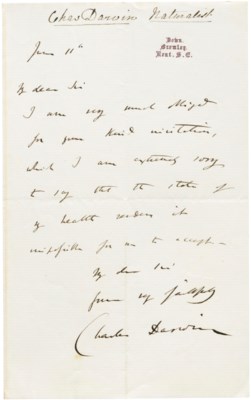 Chas Darwin Naturalist
Down,
Bromley,
Kent. S.E.
June 11th
My dear Sir
I am very much obliged
for your kind invitation,
which I am extremely sorry
to say that the state of
my health renders it
impossible for me to accept—
My dear Sir
yours very faithfully
Charles Darwin